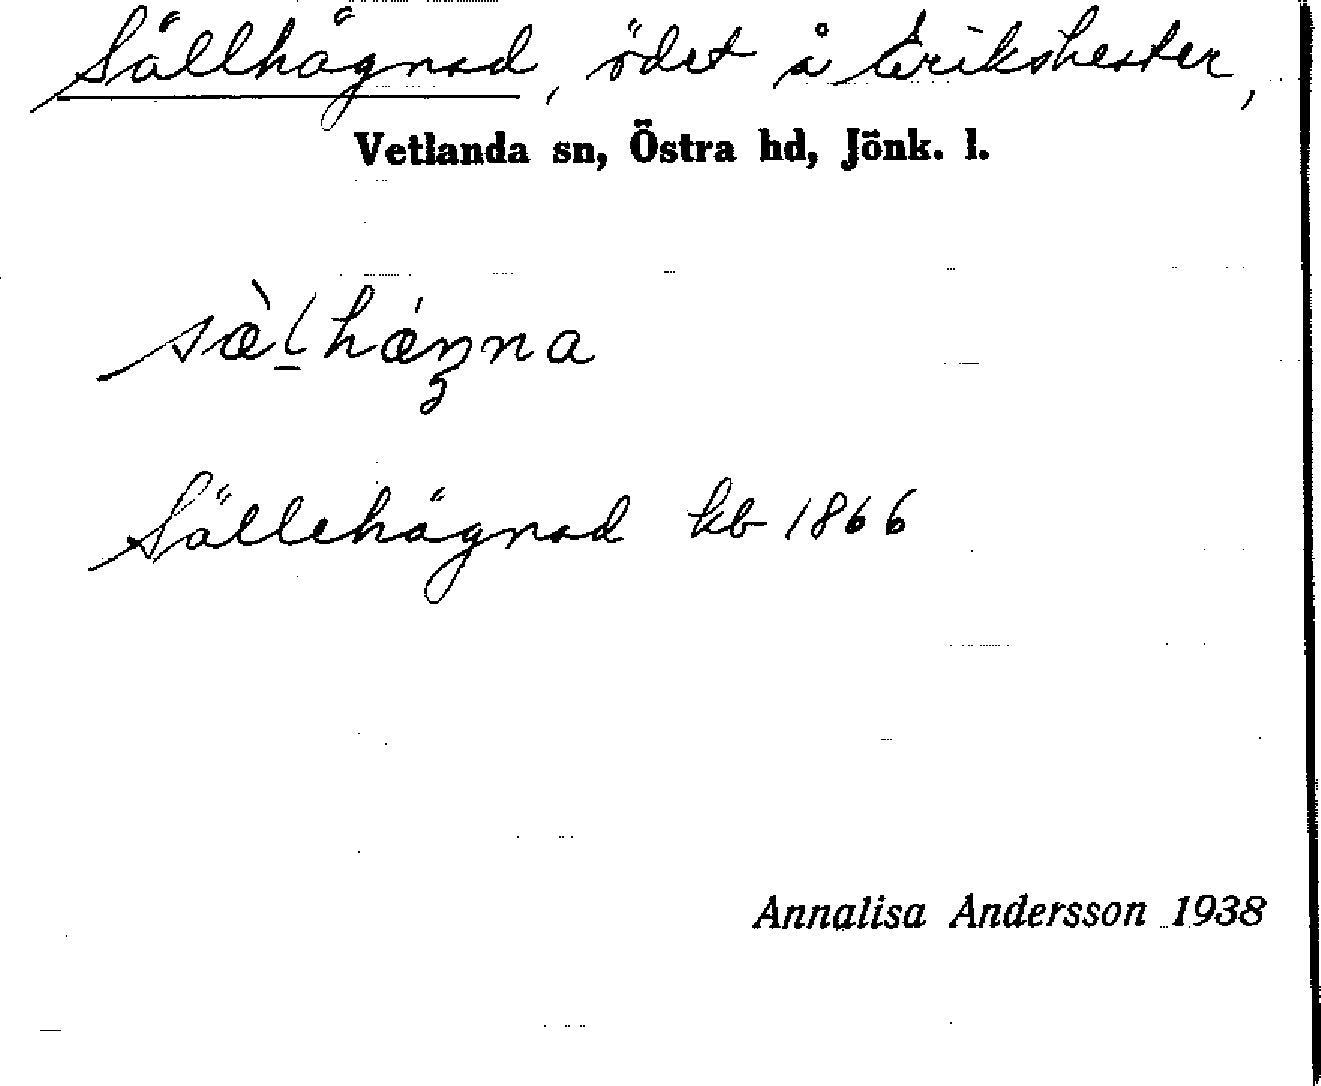 Sällhägnad, ödet å Erikshester,
Vetlanda sn, Östra hd, Jönk. l.
Sällehägnad kb 1866
Annalisa Andersson 1938